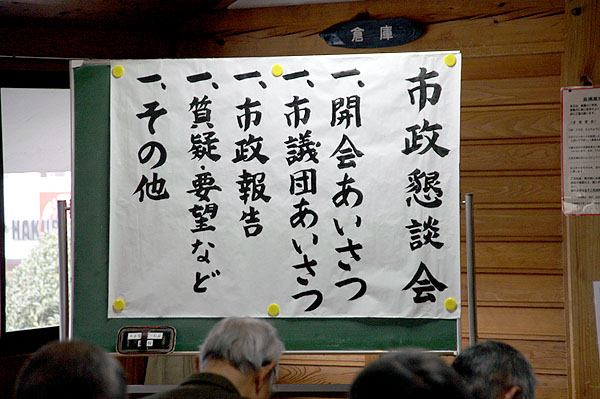 倉庫
市政懇談会
一、開会あいさつ
一、市議団あいさつ
一、市政報告
一、質疑・要望など
一、その他
HAKU